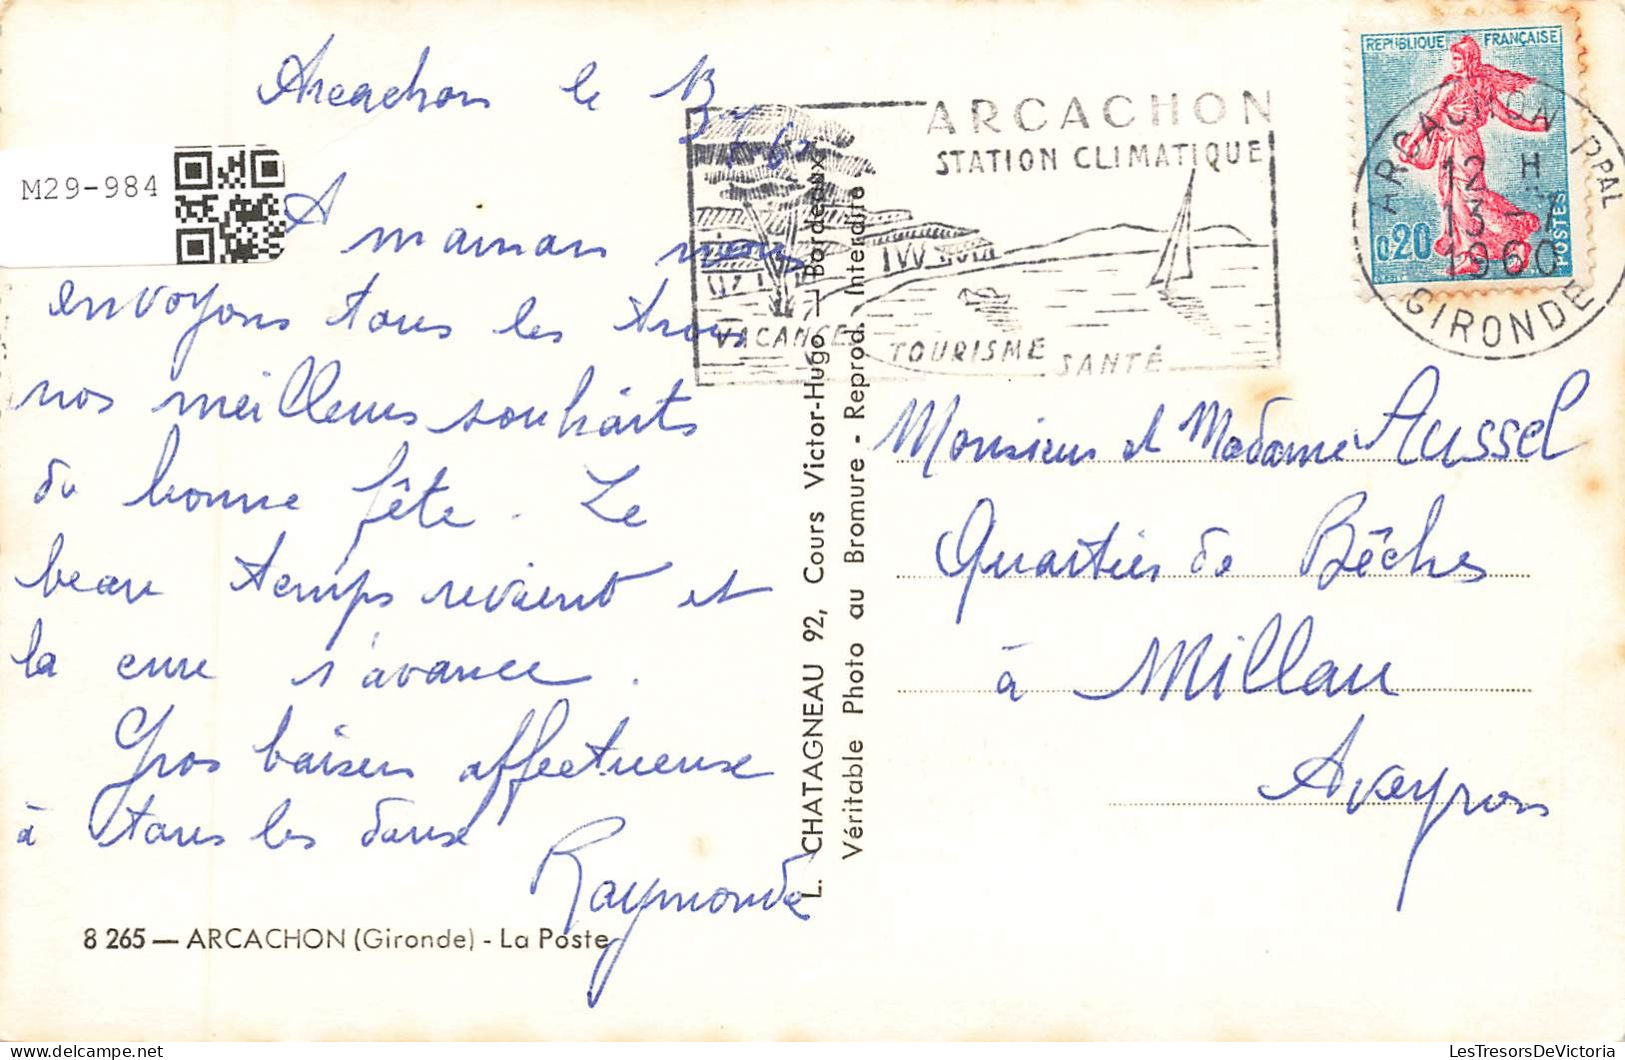 Arcachon le 13
7-60
A maman nous
envoyons tous les trois
nos meilleurs souhaits
de bonne fête. Le
beau temps revient et
la cure s'avance.
Gros baisers affectueux
à tous les deux
Raymonde
8 265 — ARCACHON (Gironde) - La Poste
M29-984
L. CHATAGNEAU 92, Cours Victor-Hugo — Bordeaux
Véritable Photo au Bromure - Reprod. Interdite
ARCACHON
STATION CLIMATIQUE
VACANCES
TOURISME
SANTÉ
REPUBLIQUE FRANÇAISE
0,20
POSTES
ARCACHON PPAL
12 H
13-7
1960
GIRONDE
Monsieur et Madame Aussel
Quartier de Bêches
à Millau
Aveyron
LesTresorsDeVictoria